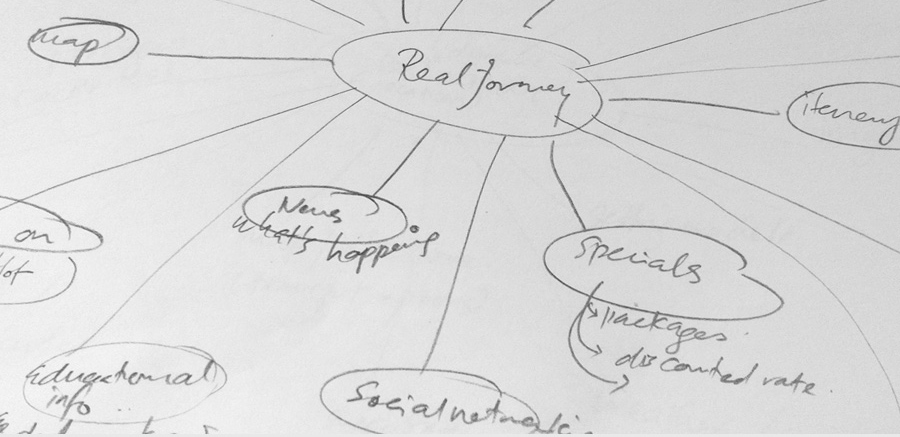 map
Real Jorney
itenery
News
what's happening
on
Specials
packages
discounted rate
Educational
info
Social